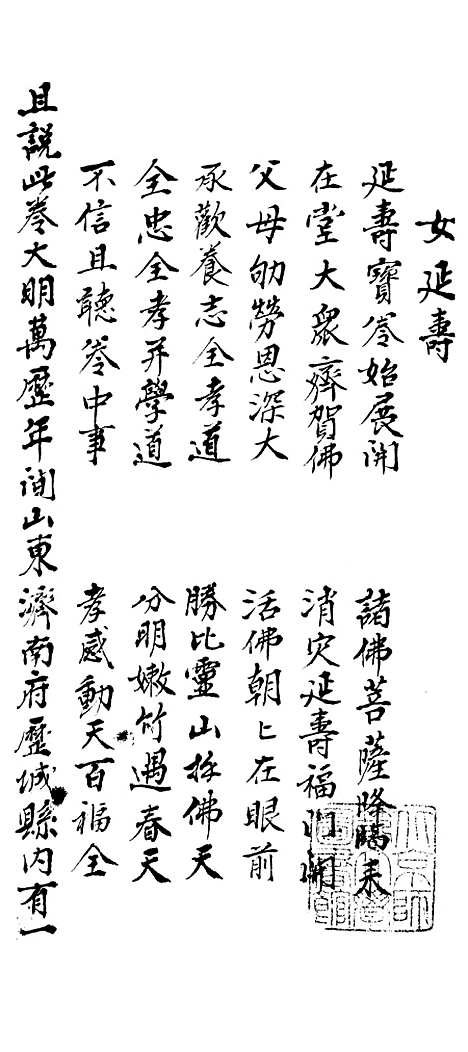 女延壽
延壽寶卷始展開 諸佛菩薩降臨來
在堂大衆齊賀佛 消灾延壽福門開
父母劬勞恩深大 活佛朝〻在眼前
承歡養志全孝道 勝比靈山拜佛天
全忠全孝并學道 分明嫩竹遇春天
不信且聽卷中事 孝感動天百福全
且説此卷大明萬歷年間山東濟南府歷城縣内有一